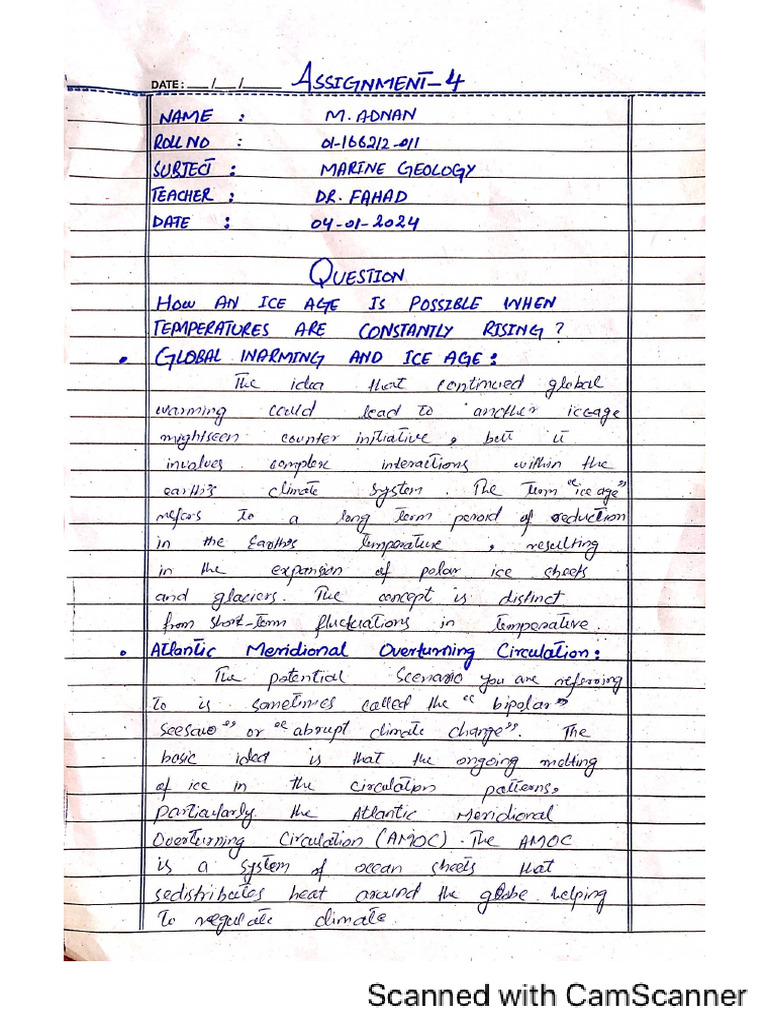 DATE: __/__/____ ASSIGNMENT-4
NAME : M. ADNAN
ROLL NO : 01-166212-011
SUBJECT : MARINE GEOLOGY
TEACHER : DR. FAHAD
DATE : 04-01-2024
QUESTION
HOW AN ICE AGE IS POSSIBLE WHEN
TEMPERATURES ARE CONSTANTLY RISING?
• GLOBAL WARMING AND ICE AGE:
The idea that continued global
warming could lead to another iceage
mightseen counter initiative, bett it
involves complex interactions within the
earth's climate system. The Term "ice age"
refers to a long term peroid of reduction
in the Earths Temperature, resulting
in the expansion of polar ice sheets
and glaciers. The concept is distinct
from short-term fluctuations in temperature.
• Atlantic Meridional Overturning Circulation:
The potential Scenario you are referring
To is sometimes called the "bipolar"
seesaw" or "abrupt climate change". The
basic idea is that the ongoing melting
of ice in the circulation patterns,
particularly the Atlantic Meridional
Overturning Circulation (AMOC). The AMOC
is a system of ocean sheets that
sedistributes heat around the globe helping
To regulate climate.
Scanned with CamScanner